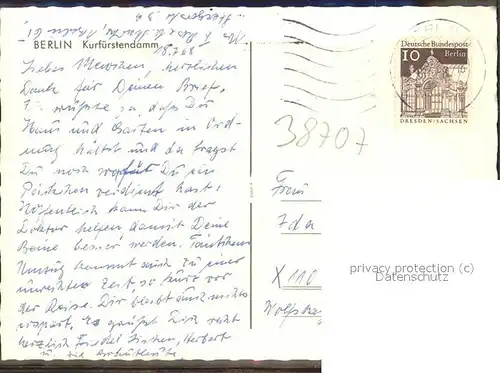 BERLIN Kurfürstendamm
18.7.68
Liebes Muschen, herzlichen
Dank für Deinen Brief.
I. wüsste ja, dass Du
Haus und Garten in Ord-
nung hältst und da fragst
Du noch wofür Du ein
Päckchen verdient hast!
Hoffentlich kann Dir der
Doktor helfen, damit Deine
Beine besser werden.
Umzug kommt auch zu einer
unrechten Zeit, so kurz vor
der Reise. Dir bleibt auch nichts
erspart. Es grüßt Dich recht
herzlich Friedel, Herbert
u. die
Deutsche Bundespost
10 Berlin
DRESDEN/SACHSEN
38707
Frau
Ida
X 110
privacy protection (c)
Datenschutz